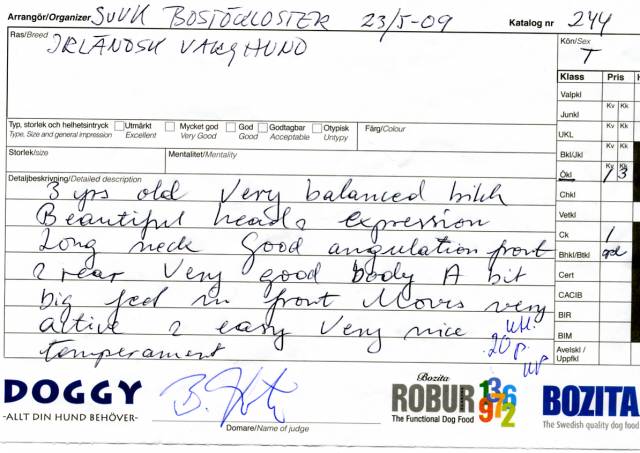 Arrangör/Organizer SvVK BOSTÖCLOSTER 23/5-09 Katalog nr 244
Ras/Breed IRLÄNDSK VARGHUND Kön/Sex T
Klass Pris
Valpkl
Kv Kk
Junkl
Kv Kk
UKL
Typ, storlek och helhetsintryck Utmärkt Mycket god God Godtagbar Otypisk Färg/Colour
Type, Size and general impression Excellent Very Good Good Acceptable Untypy
Kv Kk
Bkl/Jkl
Storlek/size Mentalitet/Mentality
Kv Kk
Ökl 1 3
Detaljbeskrivning/Detailed description
3 yrs old Very balanced bitch
Chkl
Beautiful head & expression
Vetkl
Long neck Good angulation front
Ck 1
Bhkl/Btkl god
& rear Very good body A bit
Cert
big feed in front Moves very
CACIB
active & easy Very nice
BIR
BIM
temperament 20 p. up
Avelskl / Uppfkl
DOGGY
-ALLT DIN HUND BEHÖVER-
Domare/Name of judge
Bozita
ROBUR 136 972
The Functional Dog Food
BOZITA
The Swedish quality dog food